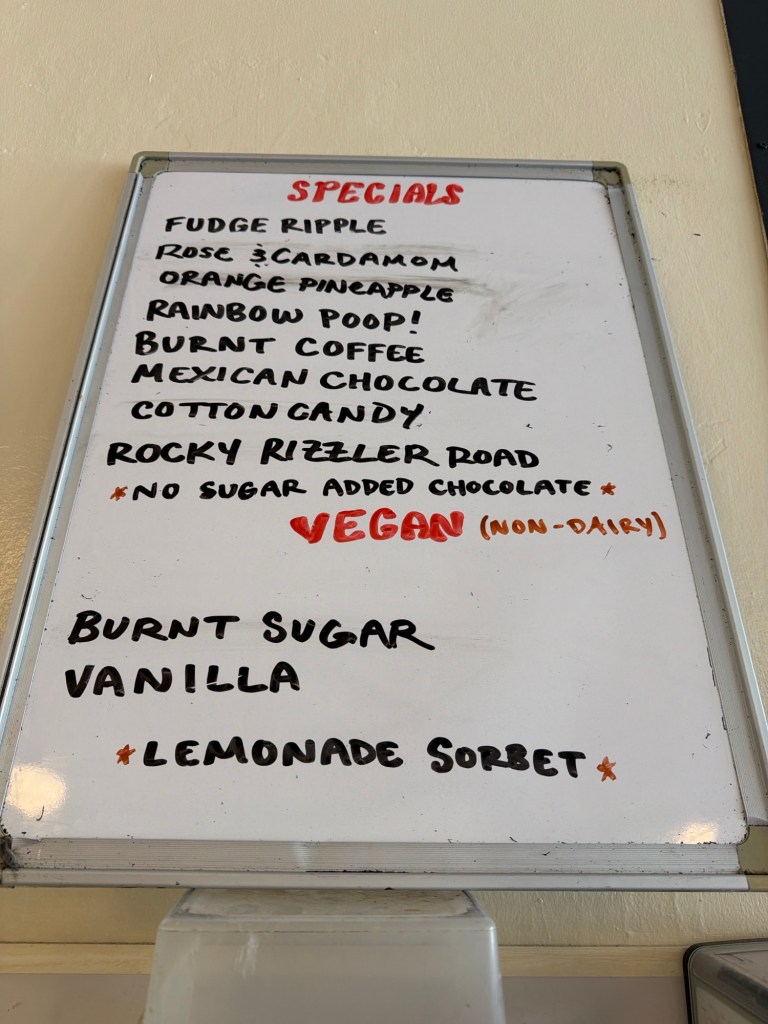 SPECIALS
FUDGE RIPPLE
ROSE & CARDAMOM
ORANGE PINEAPPLE
RAINBOW POOP!
BURNT COFFEE
MEXICAN CHOCOLATE
COTTON CANDY
ROCKY RIZZLER ROAD
*NO SUGAR ADDED CHOCOLATE*
VEGAN (NON-DAIRY)
BURNT SUGAR
VANILLA
*LEMONADE SORBET*